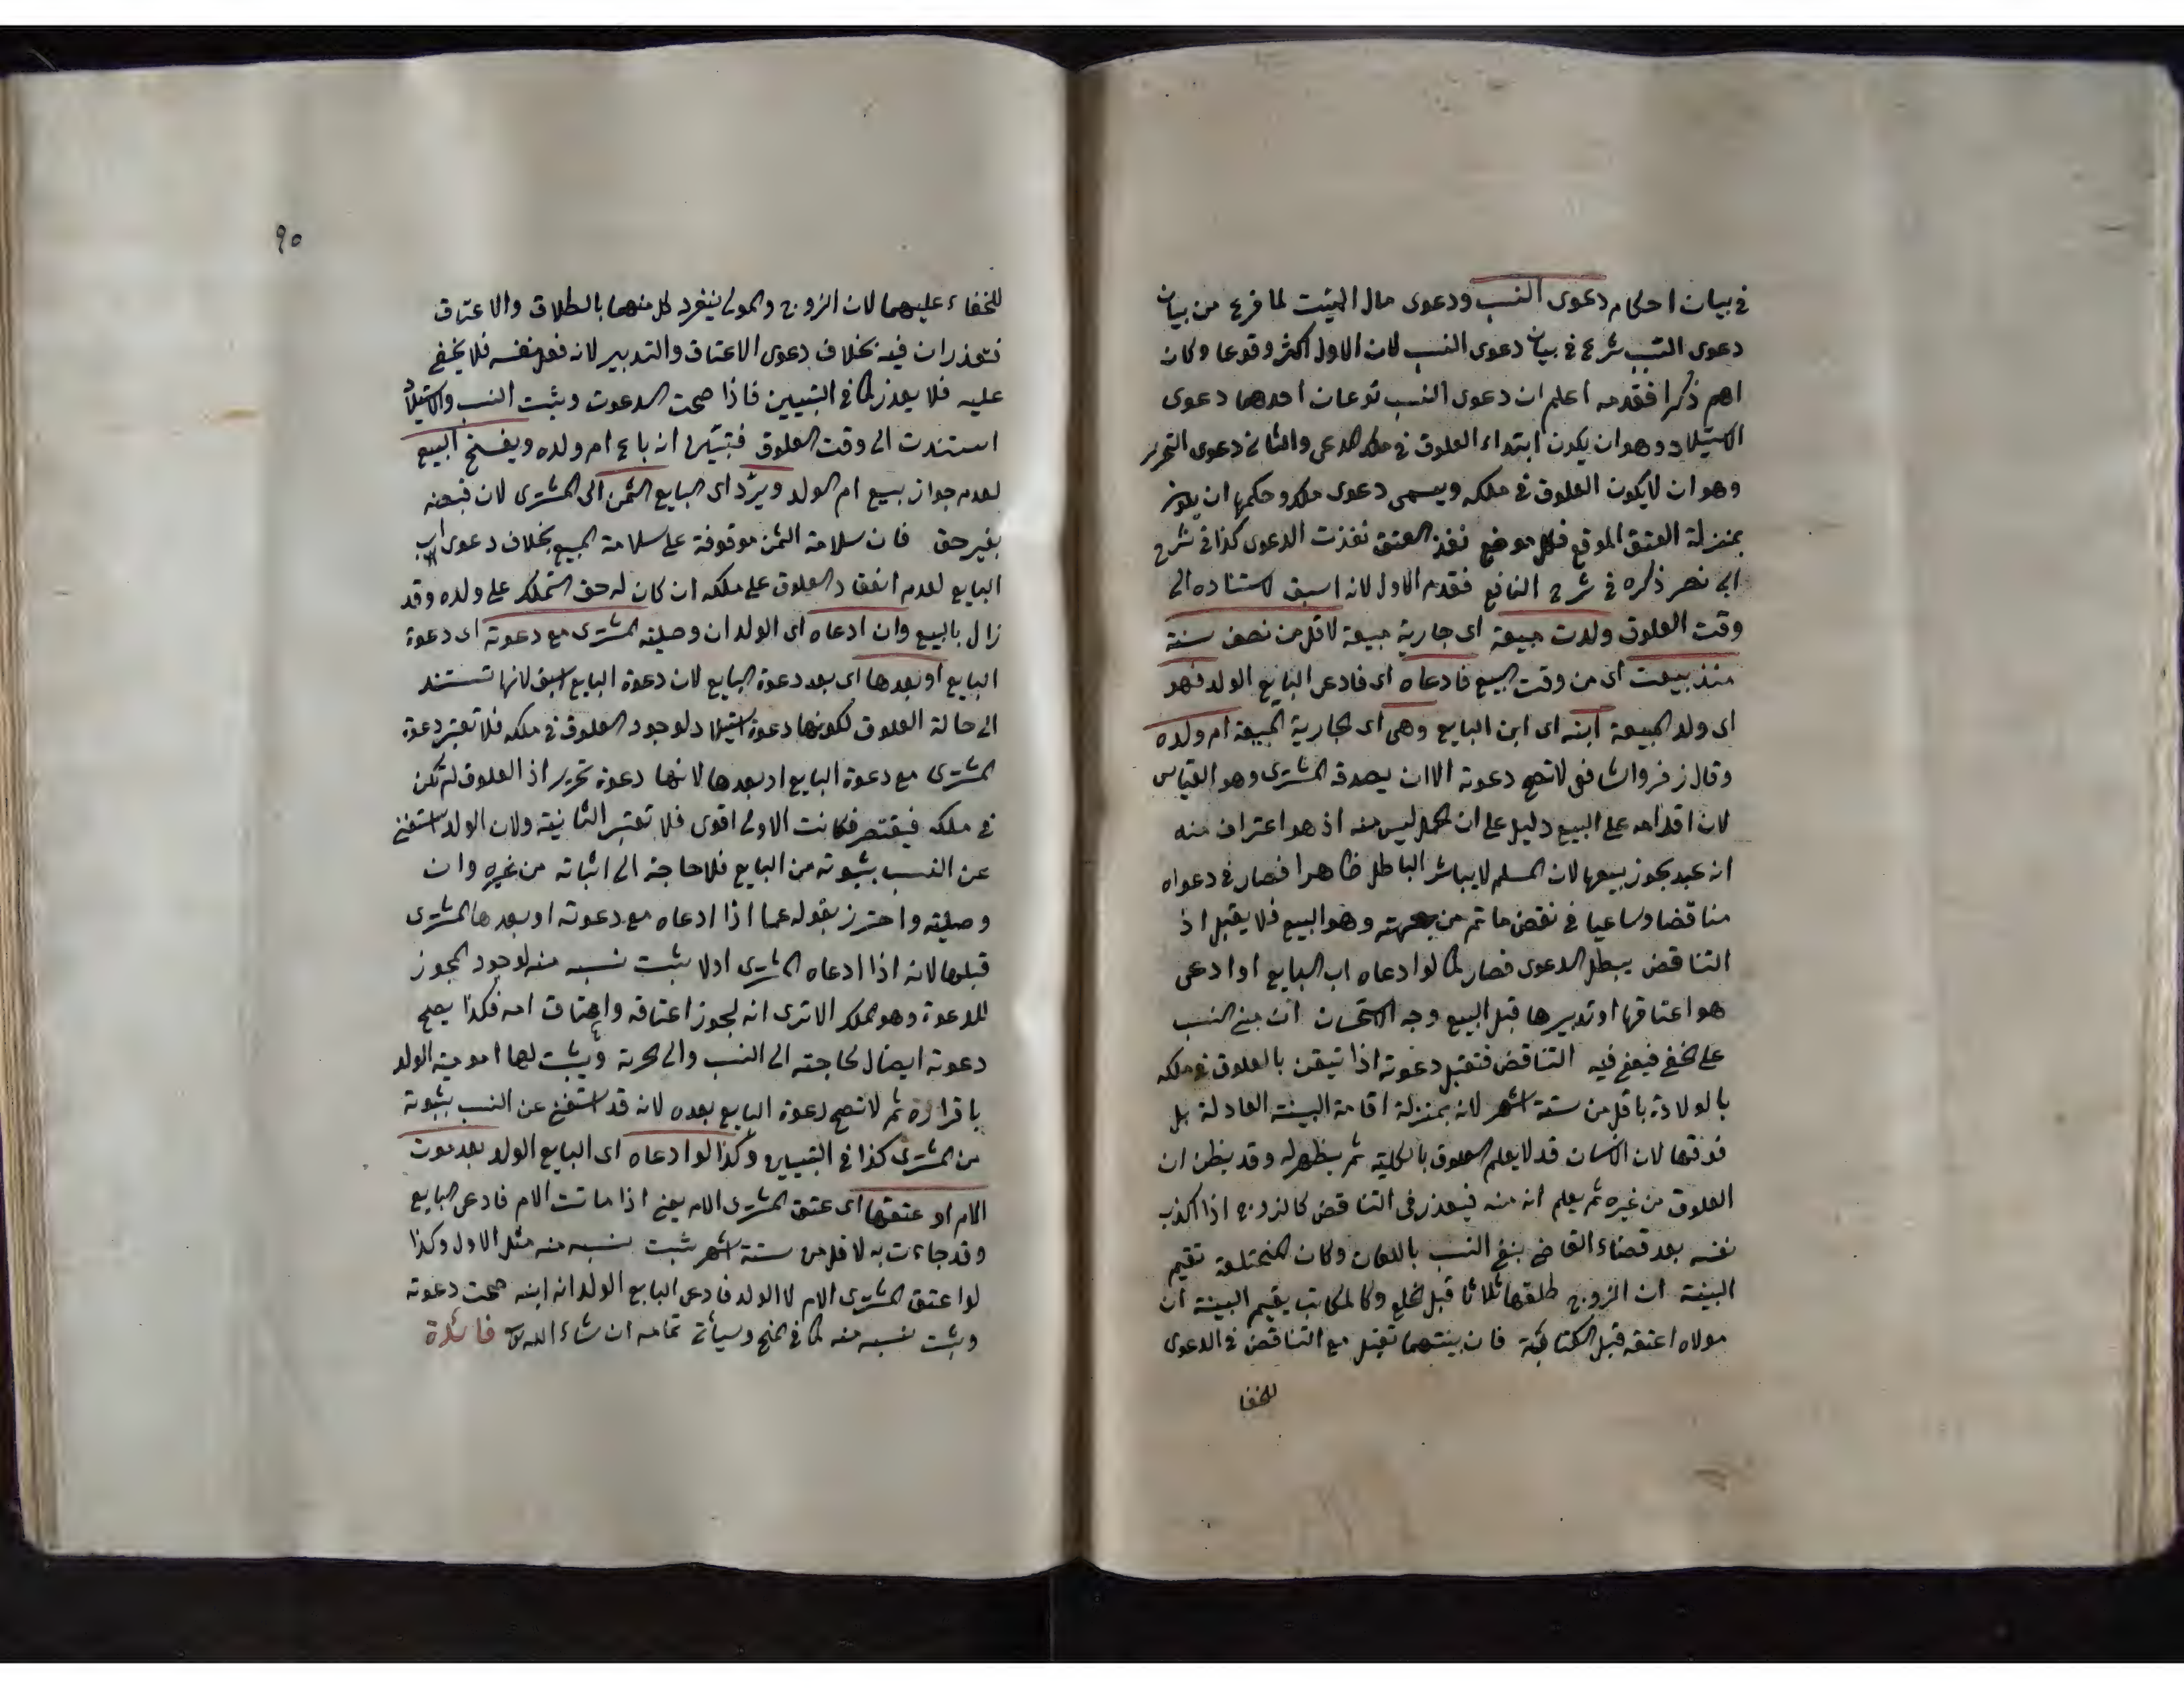 في بيان احكام دعوى النسب ودعوى مال الميت لما فرغ من بيان
دعوى النسب شرع في بيان دعوى النسب لان الاول اكثر وقوعا وكان
اهم ذكرا فقدمه اعلم ان دعوى النسب نوعان احدهما دعوى
الاستيلاد وهو ان يكون ابتداء العلوق في ملك المدعى والثانى دعوى التحرير
وهو ان لا يكون العلوق في ملكه ويسمى دعوى ملك وحكمها ان يكون
بمنزلة العتق الموقع فكل موضع نفذ العتق نفذت الدعوى كذا في شرح
ابى نصر ذكره في شرح النافع فقدم الاول لانه اسبق لاستناده الى
وقت العلوق ولدت مبيعة اى جارية مبيعة لاقل من نصف سنة
منذ بيعت اى من وقت البيع فادعاه اى فادعى البايع الولد فهو
اى ولد المبيعة ابنه اى ابن البايع وهى اى الجارية المبيعة ام ولده
وقال زفر والشافعى لا تصح دعوته الا ان يصدقه المشترى وهو القياس
لان اقدامه على البيع دليل على ان الحمل ليس منه اذ هو اعتراف منه
انه عبد يجوز بيعها لان المسلم لا يباشر الباطل ظاهرا فصار في دعواه
مناقضا وساعيا في نقض ما تم من جهته وهو البيع فلا يقبل اذ
التناقض يبطل الدعوى فصار كما لو ادعاه اب البايع او ادعى
هو اعتاقها او تدبيرها قبل البيع وجه الاستحسان ان مبنى النسب
على الخفى فيعفى فيه التناقض فتقبل دعوته اذا تيقن بالعلوق في ملكه
بالولادة باقل من ستة اشهر لانه بمنزلة اقامة البينة العادلة بل
فوقها لان الانسان قد لا يعلم العلوق بالكلية ثم يظهر له وقد يظن ان
العلوق من غيره ثم يعلم انه منه فيعذر في التناقض كالزوج اذا اكذب
نفسه بعد قضاء القاضى بنفى النسب باللعان وكان المختلعة تقيم
البينة ان الزوج طلقها ثلاثا قبل الخلع وكالمكاتب يقيم البينة ان
مولاه اعتقه قبل الكتابة فان بينتهما تقبل مع التناقض في الدعوى
للخفا
٩٥
للخفاء عليهما لان الزوج والمولى ينفرد كل منهما بالطلاق والاعتاق
فتعذران فيه بخلاف دعوى الاعتاق والتدبير لانه فعل نفسه فلا يخفى
عليه فلا يعذر كما في التبيين فاذا صحت الدعوت وثبت النسب والاستيلاد
استندت الى وقت العلوق فتبين انه باع ام ولده ويفسخ البيع
لعدم جواز بيع ام الولد ويرد اى البايع الثمن الى المشترى لان قبضه
بغير حق فان سلامة الثمن موقوفة على سلامة المبيع بخلاف دعوى اب
البايع لعدم انعقاد العلوق على ملكه ان كان له حق التملك على ولده وقد
زال بالبيع وان ادعاه اى الولد ان وصلية المشترى مع دعوته اى دعوة
البايع او بعدها اى بعد دعوة البايع لان دعوة البايع اسبق لانها تستند
الى حالة العلوق لكونها دعوة استيلاد لوجود العلوق في ملكه فلا تعتبر دعوة
المشترى مع دعوة البايع او بعدها لانها دعوة تحرير اذ العلوق لم تكن
في ملكه فيقتصر فكانت الاولى اقوى فلا تعتبر الثانية ولان الولد استغنى
عن النسب بثبوته من البايع فلا حاجة الى اثباته من غيره وان
وصلية واحترز بقوله عما اذا ادعاه مع دعوته او بعدها المشترى
قبلها لانه اذا ادعاه المشترى اولا يثبت نسبه منه لوجود المجوز
للدعوة وهو الملك الا ترى انه لجوز اعتاقه واعتاق امه فكذا يصح
دعوته ايضا لحاجته الى النسب والى الحرية ويثبت لها امومية الولد
باقراره ثم لا تصح دعوة البايع بعده لانه قد استغنى عن النسب بثبوته
من المشترى كذا في التبيين وكذا لو ادعاه اى البايع الولد بعد موت
الام او عتقها اى عتق المشترى الام يعنى اذا ماتت الام فادعى البايع
وقد جاءت به لاقل من ستة اشهر ثبت نسبه منه مثل الاول وكذا
لو اعتق المشترى الام لا الولد فادعى البايع الولد انه ابنه صحت دعوته
ويثبت نسبه منه كما في المنح وسيأتى تمامه ان شاء الله فائدة